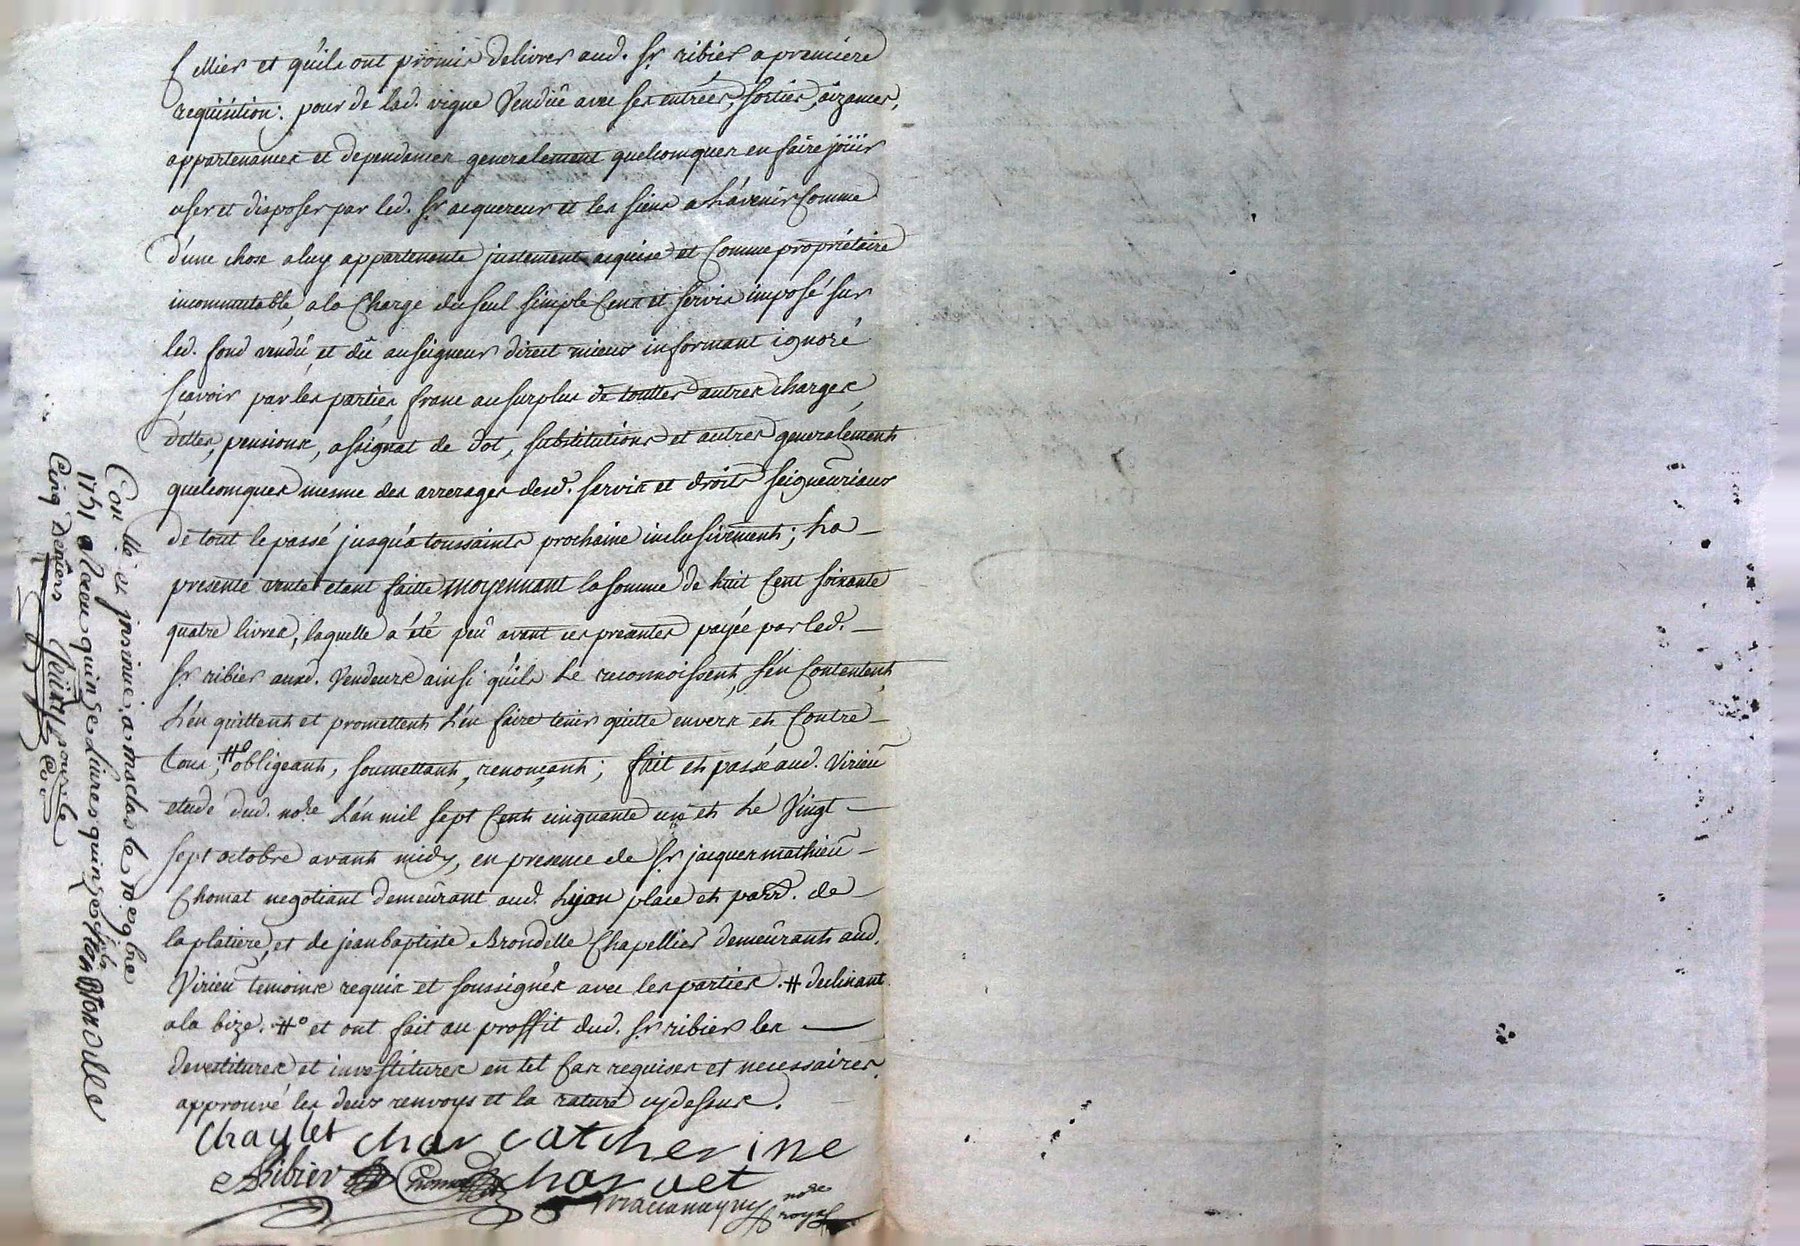 Mier et qu'ils ont promis delivrer aud. Sr. ribier a premiere
requisition: pour de lad. vigne Vendüe avec ses entrées, sorties, aizances,
appartenances et dependences generalement quelconques en faire joüir
user et disposer par led. Sr acquereur et les siens a L'avenir Comme
d'une chose a luy appartenante justement acquise et Comme propriétaire
incommutable, a la Charge du seul simple Cens et servis imposé sur
led. fond vendu, et dû au seigneur direct mieux informant ignoré
scavoir par les parties franc au surplus de touttes autres charges,
dettes, pensions, assignat de dot, substitutions et autres generalement
quelconques mesme des arrerages desd. servis et droits seigneuriaux
de tout le passé jusqu'a toussaints prochaine inclusivement; La
presente vente etant faitte moyennant la somme de huit Cent soixante
quatre livres, laquelle a été peu avant ces presantes payée par led.
Sr ribier auxd. Vendeurs ainsi qu'ils Le reconnoissent, s'en Contentent
L'en quittent et promettent L'en faire tenir quitte envers et Contre
tous; #° obligeant, soumettant, renonçant; fait et passé aud. Virieu
etude dud. nore. L'an mil sept Cent cinquante un et Le Vingt
sept octobre avant midy, en presence de Sr jacques mathieu
Chomat negotiant demeurant aud. Lyon place et parr. de
la platiere, et de jean baptiste Brondelle Chapellier demeurant aud.
Virieu temoins requis et soussignés avec les parties. # declinant
a la bize. #° et ont fait au proffit dud. Sr ribier les
devestitures et investitures en tel Cas requises et necessaires.
approuvé les deux renvoys et la rature cy dessus.
Chaylet char catcherine
Ribier Chomat charvet
nore
royal
Con.lle et insinué a maclas le 10e 9bre
1751 Receu quinze Livres quinze sols
Cinq deniers pour le